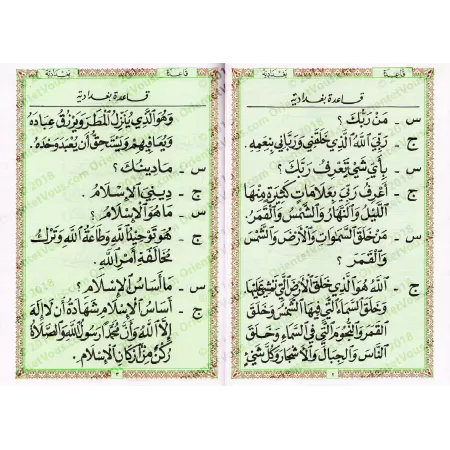 قاعدة
بغدادية
قاعدة بغدادية
س - مَنْ رَبُّكَ ؟
ج - رَبِّيَ اللهُ الَّذِي خَلَقَنِي وَرَبَّانِي بِنِعَمِهِ.
س - بِأَيِّ شَيْءٍ تَعْرِفُ رَبَّكَ ؟
ج - أَعْرِفُ رَبِّي بِعَلَامَاتٍ كَثِيرَةٍ مِنْهَا
اللَّيْلُ وَالنَّهَارُ وَالشَّمْسُ وَالْقَمَرُ.
س - مَنْ خَلَقَ السَّمٰوَاتِ وَالْأَرْضَ وَالشَّمْسَ
وَالْقَمَرَ ؟
ج - اللهُ هُوَ الَّذِي خَلَقَ الْأَرْضَ الَّتِي نَمْشِي عَلَيْهَا
وَخَلَقَ السَّمَاءَ الَّتِي فِيهَا الشَّمْسُ وَ
الْقَمَرُ وَالنُّجُومُ الَّتِي فِي السَّمَاءِ وَخَلَقَ
النَّاسَ وَالْجِبَالَ وَالْأَشْجَارَ وَكُلَّ شَيْءٍ
قاعدة
بغدادية
قاعدة بغدادية
وَهُوَ الَّذِي يُنَزِّلُ الْمَطَرَ وَيَرْزُقُ عِبَادَهُ
وَيُعَافِيهِمْ وَيَسْتَحِقُّ أَنْ يُعْبَدَ وَحْدَهُ.
س - مَا دِينُكَ ؟
ج - دِينِيَ الْإِسْلَامُ.
س - مَا هُوَ الْإِسْلَامُ ؟
ج - هُوَ تَوْحِيدُ اللهِ وَطَاعَةُ اللهِ وَتَرْكُ
مُخَالَفَةِ أَمْرِ اللهِ.
س - مَا أَسَاسُ الْإِسْلَامِ ؟
ج - أَسَاسُ الْإِسْلَامِ شَهَادَةُ أَنْ لَا إِلٰهَ
إِلَّا اللهُ وَأَنَّ مُحَمَّدًا رَسُولُ اللهِ وَالصَّلَاةُ
رُكْنٌ مِنْ أَرْكَانِ الْإِسْلَامِ.